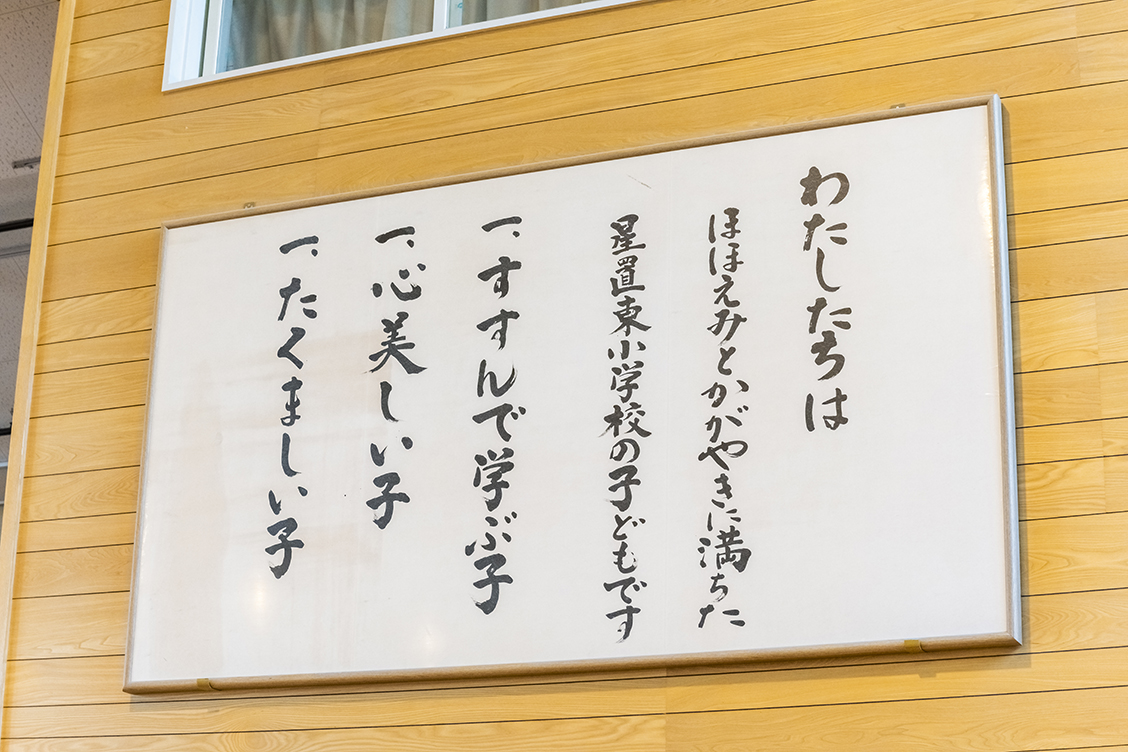 わたしたちは
ほほえみとかがやきに満ちた
星置東小学校の子どもです
一、すすんで学ぶ子
一、心美しい子
一、たくましい子